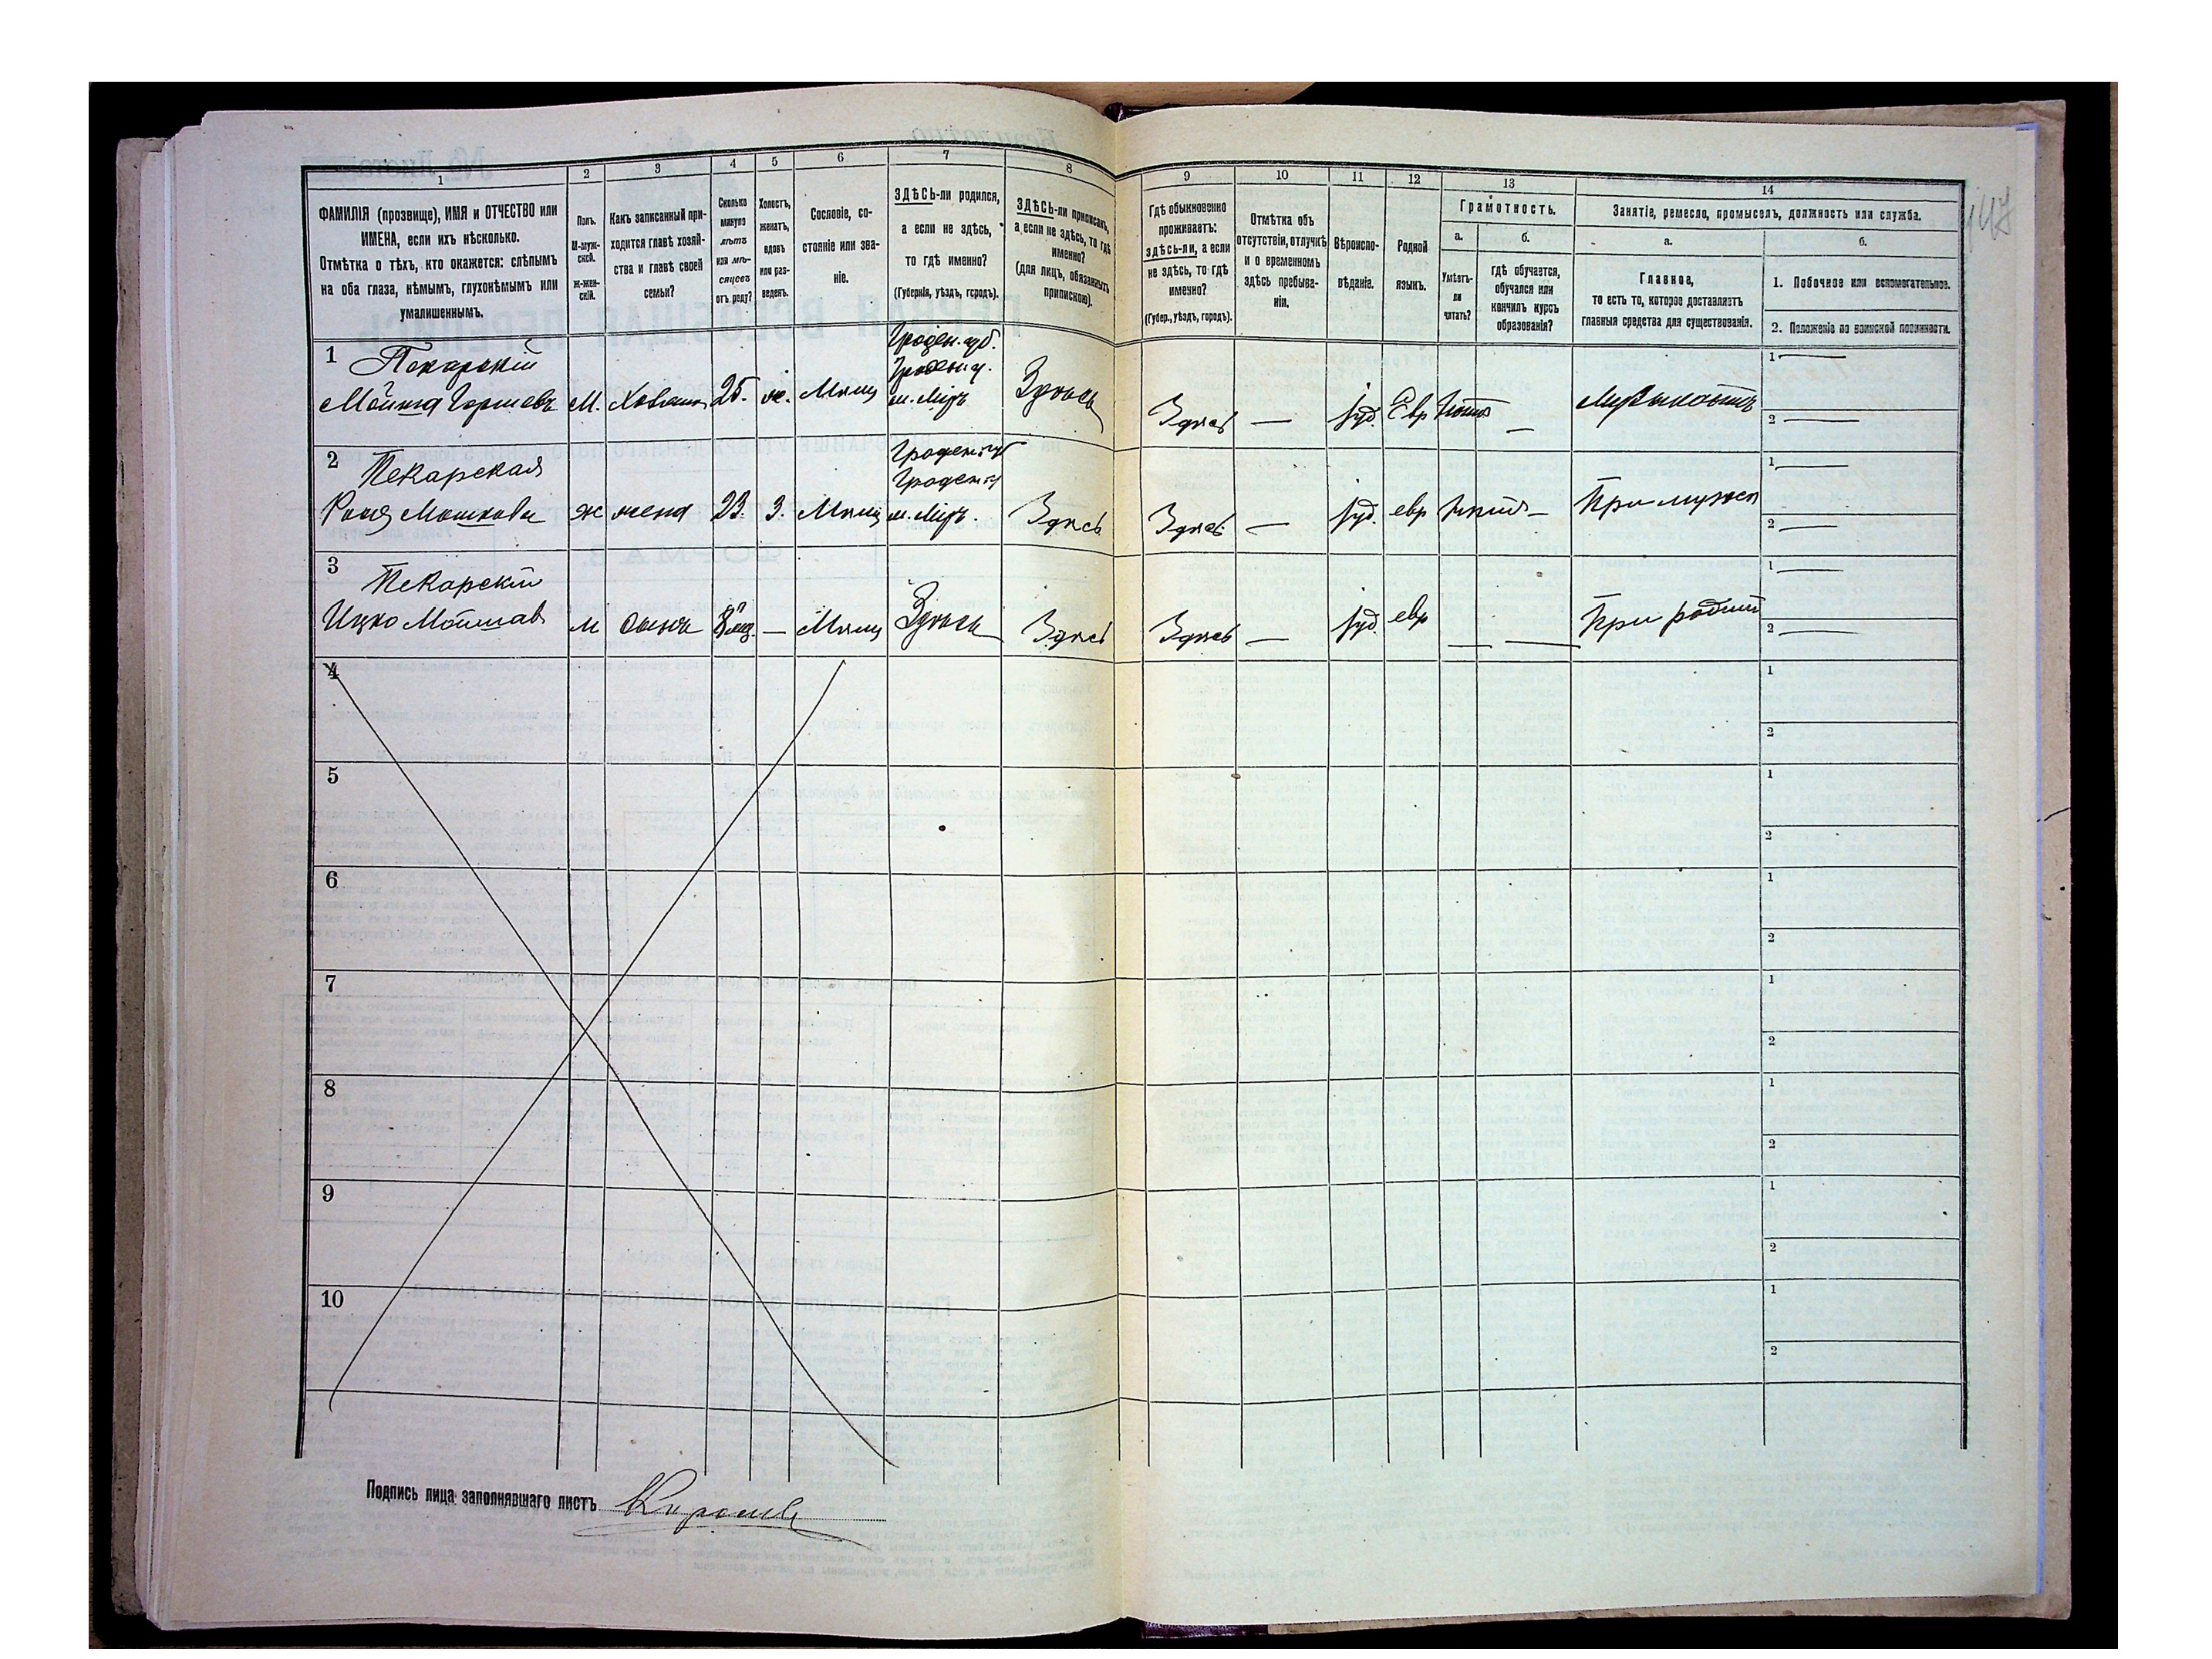 1
2
3
4
5
6
7
8
9
10
11
12
13
14
ФАМИЛІЯ (прозвище), ИМЯ и ОТЧЕСТВО или
ИМЕНА, если ихъ нѣсколько.
Отмѣтка о тѣхъ, кто окажется: слѣпымъ
на оба глаза, нѣмымъ, глухонѣмымъ или
умалишеннымъ.
Полъ.
М-муж-
ской.
ж-жен-
скій.
Какъ записанный при-
ходится главѣ хозяй-
ства и главѣ своей
семьи?
Сколько
минуло
лѣтъ
или мѣ-
сяцевъ
отъ роду?
Холостъ,
женатъ,
вдовъ
или раз-
веденъ.
Сословіе, со-
стояніе или зва-
ніе.
ЗДѢСЬ-ли родился,
а если не здѣсь,
то гдѣ именно?
(Губернія, уѣздъ, городъ).
ЗДѢСЬ-ли приписанъ,
а если не здѣсь, то гдѣ
именно?
(для лицъ, обязанныхъ
припискою).
Гдѣ обыкновенно
проживаетъ:
здѣсь-ли, а если
не здѣсь, то гдѣ
именно?
(Губер., уѣздъ, городъ).
Отмѣтка объ
отсутствіи, отлучкѣ
и о временномъ
здѣсь пребыва-
ніи.
Вѣроиспо-
вѣданіе.
Родной
языкъ.
Грамотность.
а.
б.
Умѣетъ-
ли
читать?
гдѣ обучается,
обучался или
кончилъ курсъ
образованія?
Занятіе, ремесло, промыселъ, должность или служба.
а.
б.
Главное,
то есть то, которое доставляетъ
главныя средства для существованія.
1. Побочное или вспомогательное.
2. Положеніе по воинской повинности.
147
1 Пекарскій
М. 25. ж. Мѣщ
Гроден. губ.
Гроден у.
м. Миръ
Здѣсь
Здѣсь — іуд. Евр
Музыкантъ
1 —
2 —
2 Пекарская
ж жена 23. З. Мѣщ
Гроден губ
Гроден у
м. Миръ.
Здѣсь
Здѣсь — іуд. евр
При мужѣ
1 —
2 —
3 Пекарскій
Ицко
м сынъ 8 мц. — Мѣщ
Здѣсь
Здѣсь
Здѣсь — іуд. евр — —
При родит
1 —
2 —
4
1
2
5
1
2
6
1
2
7
1
2
8
1
2
9
1
2
10
1
2
Подпись лица заполнявшаго листъ